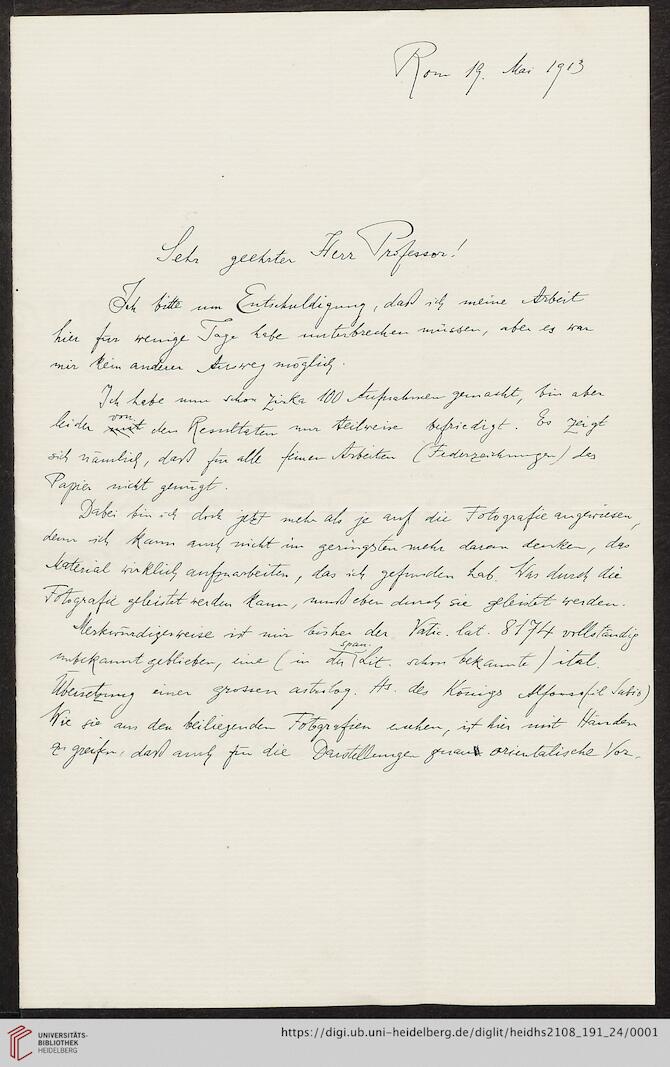 Rom 19. Mai 1913
Sehr geehrter Herr Professor!
Ich bitte um Entschuldigung, daß ich meine Arbeit
hier für wenige Tage habe unterbrechen müssen, aber es war
mir kein anderer Ausweg möglich.
Ich habe nun schon zirka 100 Aufnahmen gemacht, bin aber
von
leider mit den Resultaten nur teilweise befriedigt. Es zeigt
sich nämlich, daß für alle feinen Arbeiten (Federzeichnungen) das
Papier nicht genügt.
Dabei bin ich doch jetzt mehr als je auf die Fotografie angewiesen,
denn ich kann auch nicht im geringsten mehr daran denken, das
Material wirklich aufzuarbeiten, das ich gefunden hab. Was durch die
Fotografie geleistet werden kann, muß eben durch sie geleistet werden.
Merkwürdigerweise ist mir bisher der Vatic. lat. 8174 vollständig
span.
unbekannt geblieben, eine (in der Lit. schon bekannte) ital.
Übersetzung einer grossen astrolog. Hs. des Königs Alfonso (il Sabio)
Wie sie aus den beiliegenden Fotografien sehen, ist hier mit Händen
zu greifen, daß auch für die Darstellungen genau orientalische Vor-
UNIVERSITÄTS-
BIBLIOTHEK
HEIDELBERG
https://digi.ub.uni-heidelberg.de/diglit/heidhs2108_191_24/0001